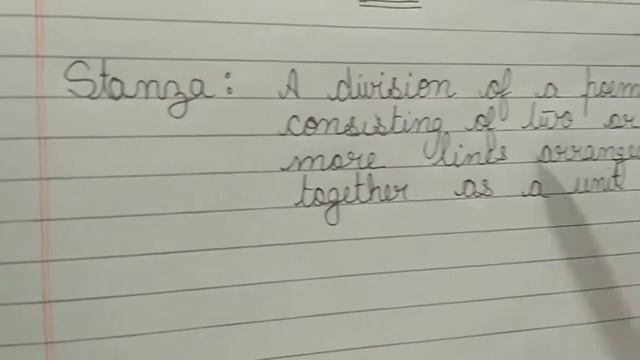 Stanza: A division of a poem
consisting of two or
more lines arrange
together as a unit